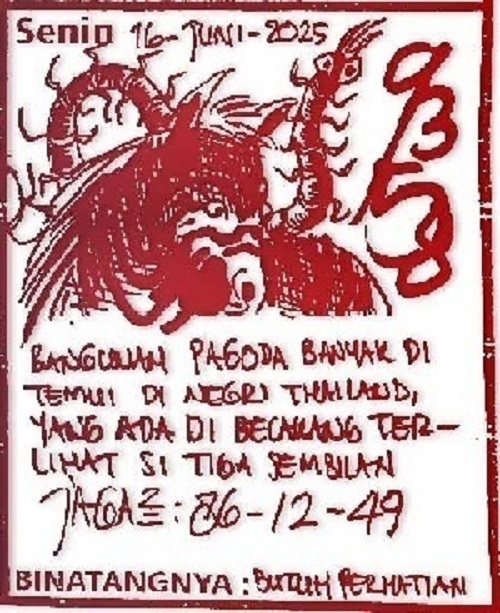 Senin 16-JUNI-2025
BANGUNAN PAGODA BANYAK DI
TEMUI DI NEGRI THAILAND,
YANG ADA DI BECAKANG TER-
LIHAT SI TIGA SEMBILAN
JAGA2 : 86-12-49
BINATANGNYA : BUTUH PERHATIAN